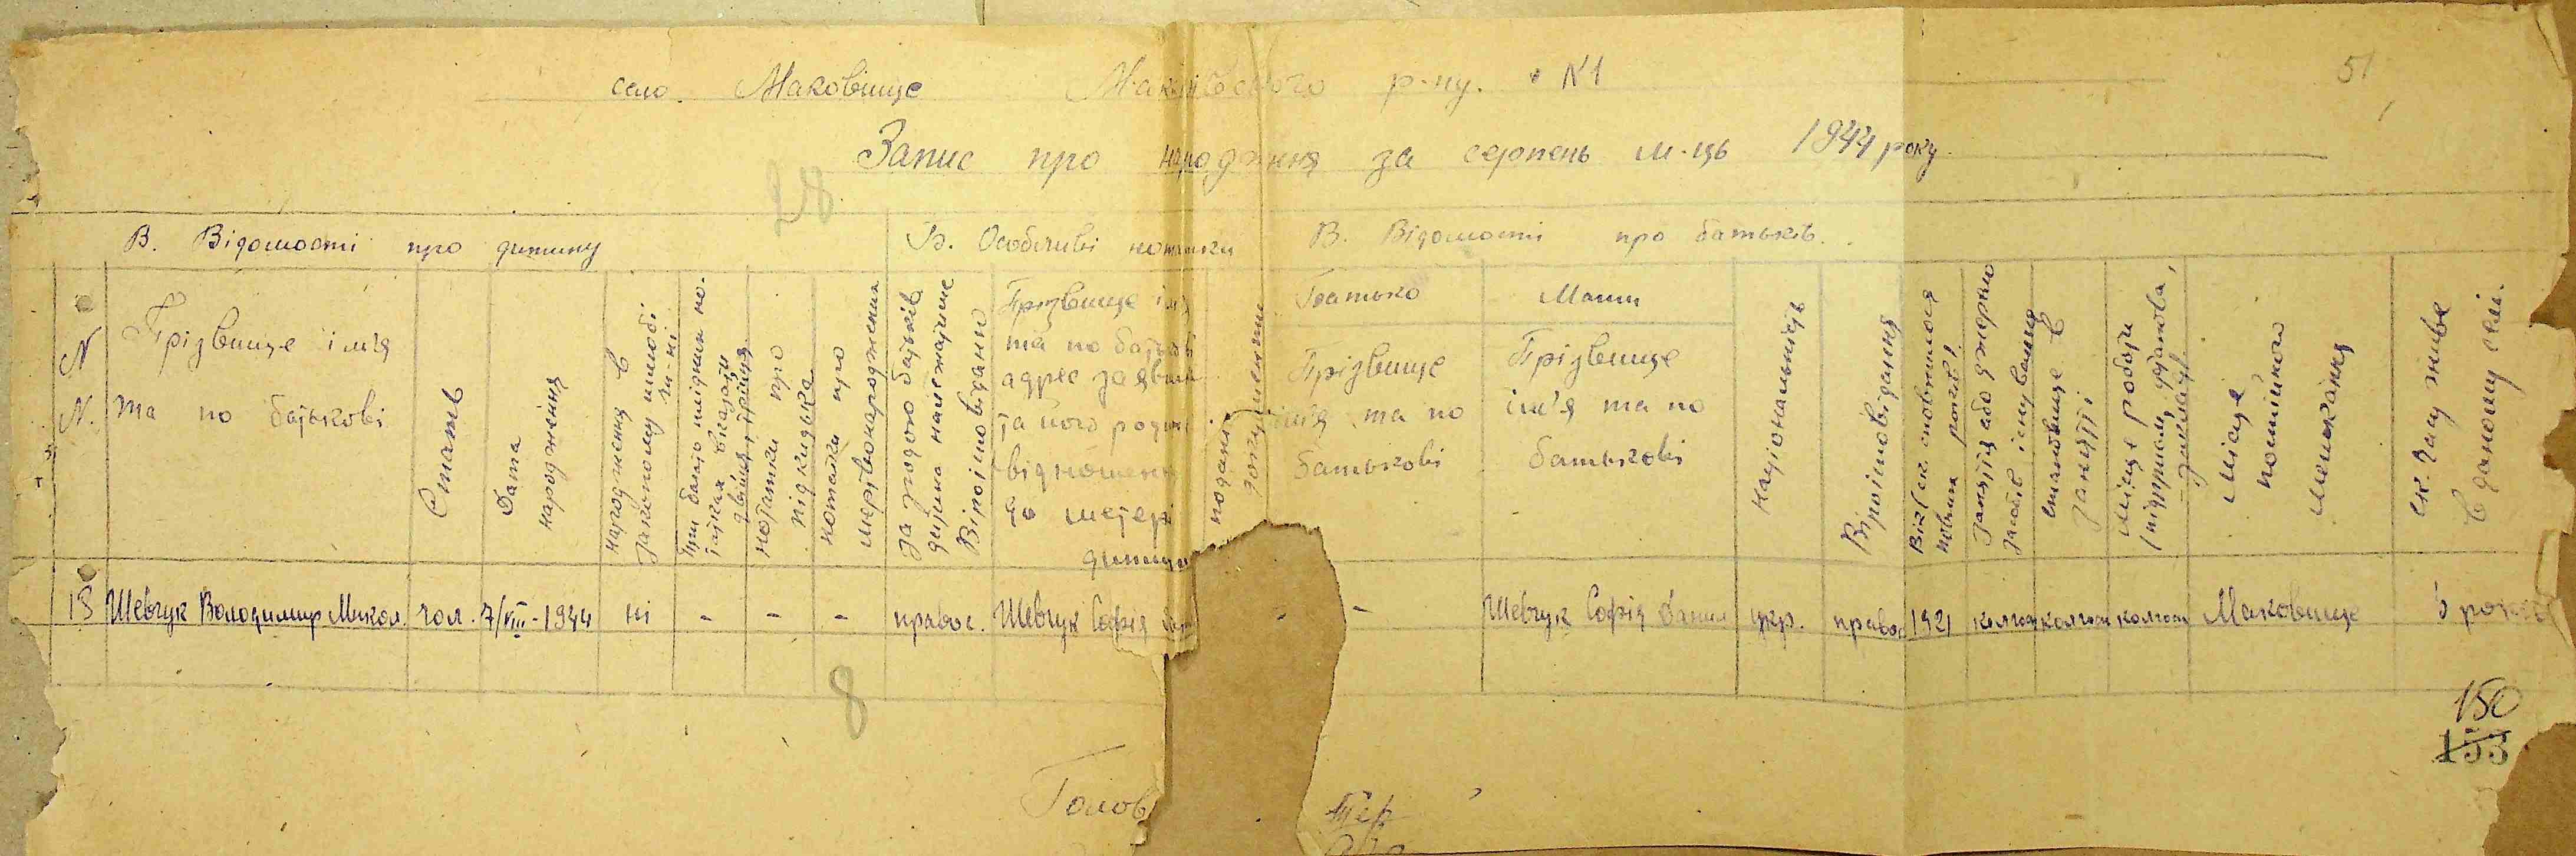 село Маковище Макарівського р-ну. N1
51
Запис про народження за серпень м-ць 1944 року.
28
В. Відомості про дитину
Б. Особливі нотатки
В. Відомості про батьків.
N N.
Прізвище ім'я
та по батькові
Стать
Дата
народження
народження в
законному шлюбі
чи ні
нотатки про
підкидька
нотатки про
мертвонародження
за згодою батьків
дитина належатиме
Віросповідання
Прізвище ім'я
та по батьк
адрес заявн
та його родин
відношення
до матері
дитини
подані
документи
Батько
Прізвище
ім'я та по
батькові
Мати
Прізвище
ім'я та по
батькові
Національність
Віросповідання
Вік (ск. сповнилося
повних років)
Заняття або джерело
засобів існування
становище в
занятті
місце роботи
місце
постійного
мешкання
ск. часу живе
в даному селі.
13 Шевчук Володимир Микол. чол. 7/VIII-1944 ні - - - правос. Шевчук Софія - - Шевчук Софія Данил укр. правос 1921 колгосп колгосп колгосп Маковище 5 років
8
150
153
Голов